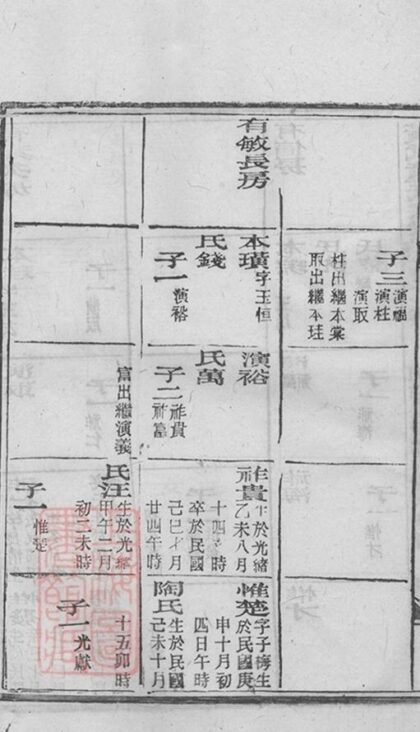 子三演福
演柱
演取
柱出繼本棠
取出繼本珪
有敏長房
本璜字玉恒
氏錢
子一演裕
演裕
氏萬
子二祚貴
祚富
富出繼演義
祚貴生於光緒
乙未八月
十四 時
卒於民國
己巳 月
廿四午時
氏汪生於光緒
甲午二月
初二未時
子一惟楚
惟楚字子梅生
於民國庚
申十月初
四日午時
陶氏生於民國
己未十月
十五卯時
子一光獻